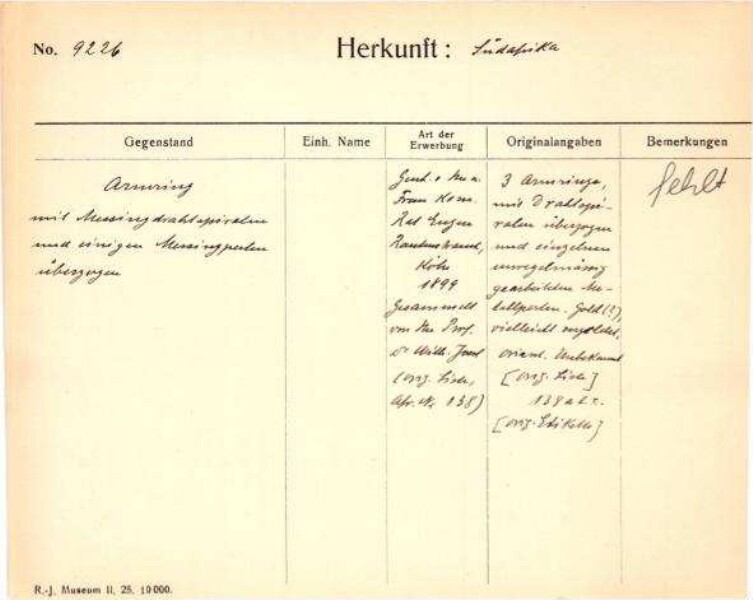 No. 9226
Herkunft: Südafrika
Gegenstand
Einh. Name
Art der Erwerbung
Originalangaben
Bemerkungen
Armring
mit Messingdrahtspiralen
und einigen Messingperlen
überzogen
Gesch. v. Hn u.
Frau Kom.
Rat Eugen
Rautenstrauch,
Köln
1899
Gesammelt
von Hn Prof.
Dr Wilh. Joest
(orig. Liste,
Afr. Nr 138)
3 Armringe,
mit Drahtspi-
ralen überzogen
und einzelnen
unregelmässig
gearbeiteten Me-
tallperlen. Gold (?),
vielleicht vergoldet,
orient. Unbekannt
[orig. Liste]
138 a b c.
[orig. Etikette]
fehlt
R.-J. Museum II. 25. 10000.